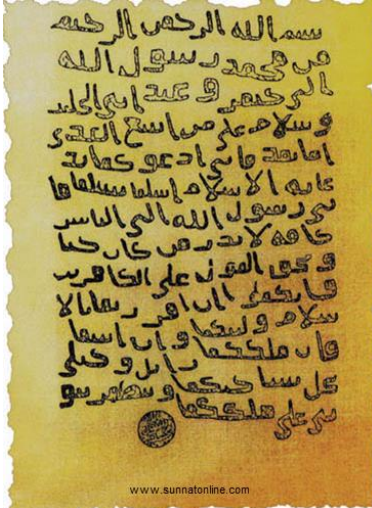 بسم الله الرحمن الرحيم
من محمد رسول الله
الى جيفر و عبد ابني الجلند
و سلام على من اتبع الهدى
اما بعد فاني ادعو كما بد
عايه الاسلام اسلما تسلما فا
ني رسول الله الى الناس
كافه لانذر من كان حيا
و يحق القول على الكافرين
فانكما ان اقررتما بالا
سلام وليتكما و ان ابيتما
فان ملككما زايل و خيلي
تحل بساحتكما و تظهر نبو
تي على ملككما
www.sunnatonline.com